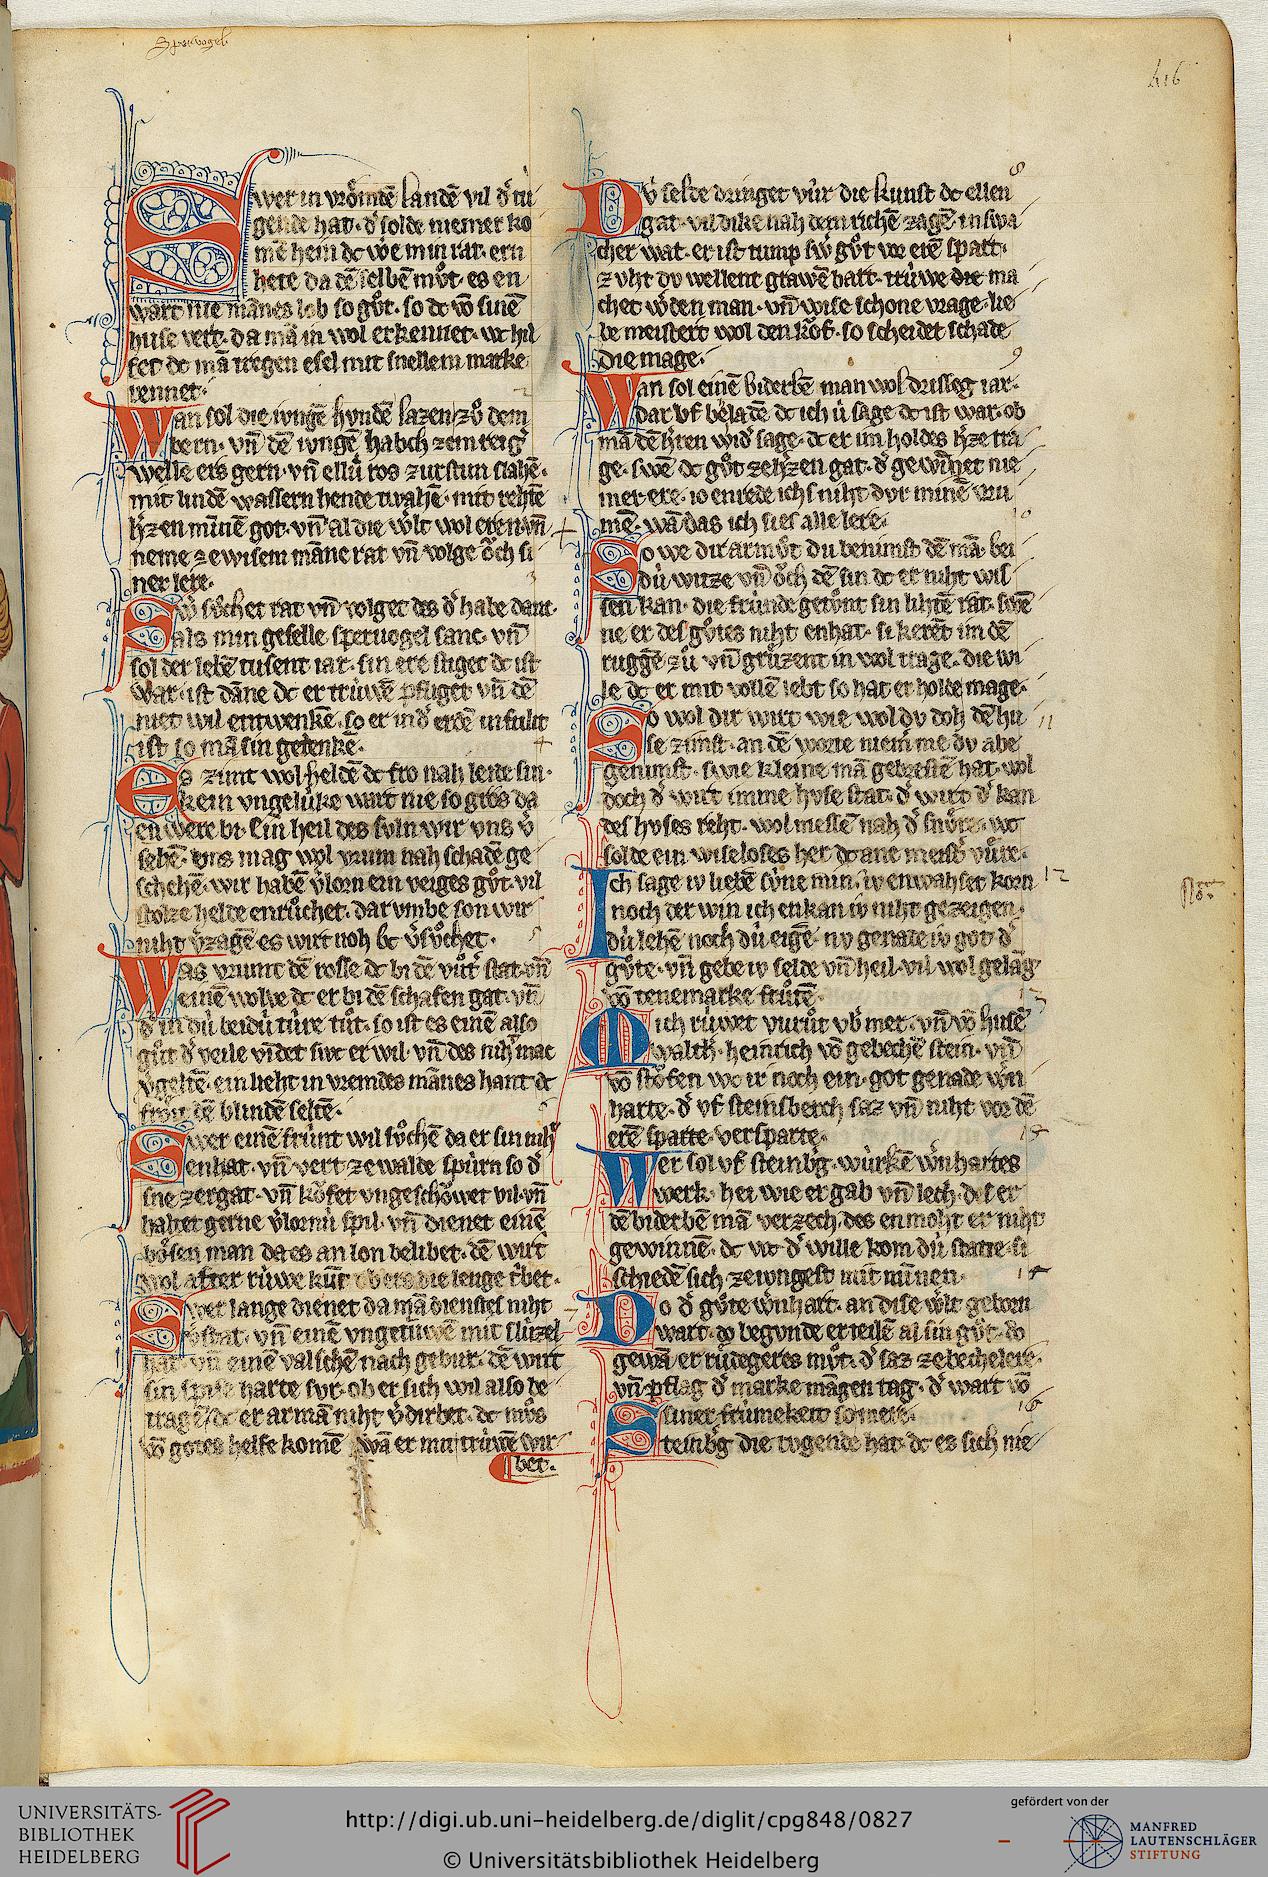 Spervogel
416
Swer in vrömdē landē vil d' tu
gende hat · d' solde niemer ko
mē hein dc we min rat · ern
hete da dē selbē mŏt · es en
wart nie mānes lob so gŏt · so dc vō sinē
huse vert · da mā in wol erkennet · wc hil
fet dc mā tregen esel mit snellem marke
rennet ·
Wan sol die iungē hvndē lazen zŏ dem
bern · vn̄ dē ivngē habch zem reig'
welle ers gern · vn̄ ellú ros zur stun slahē ·
mit lindē wassern hende twahē · mit rehtē
h'zen minnē got · vn̄ al die w'lt wol eren vn̄
neme ze wisem māne rat vn̄ volge ŏch si
ner lere ·
Sw' sŏchet rat vn̄ volget des d' habe danc ·
als min geselle spervogel sanc · vn̄
sol der lebē tusent iar · sin ere stiget dc ist
war ist dāne dc er trúwē pfliget vn̄ dē
niet wil entwenkē · so er in d' erdē
ist so mā sin gedenke ·
Es zimt wol heldē dc fro nah leide sin ·
kein vngelúke wart nie so gros da
en were bi · ein heil des suln wir vns v'
sehē · vns mag wol vrum nah schadē ge
schehē · wir habē v'lorn ein veiges gŏt · vil
stolze helde enrŏchet · dar vmbe son wir
niht v'zagē es wirt noh bc v'sŏchet ·
Was vrumt dē rosse dc bi dē vŏt' stat · vn̄
einē wolve dc er bi dē schafen gat · vn̄
d' in dú beidú túre tŏt · so ist es einē also
gŏt d' veile vindet swc er wil · vn̄ des niht mac
v'geltē · ein lieht in vremdes mānes hant · dc
frŏit dē blindē seltē ·
Swer einē frúnt wil sŏchē da er sin niht
enhat · vn̄ vert ze walde spúrn so d'
sne zergat · vn̄ kŏfet vngeschŏwet vil · vn̄
haltet gerne v'lornú spil · vn̄ dienet einē
bŏsen man da es an lon belibet · dē wirt
wol after rúwe kunt ob ers die lenge tribet ·
Swer lange dienet da mā dienstes niht
v'stat · vn̄ einē vngetrúwē mit slúzel
hat · vn̄ einē valschē nach gebur · dē wirt
sin spise harte sur · ob er sich wil also be
tragē dc er armā niht v'dirbet · dc mŏs
vō gotes helfe komē wā er mit trúwē wir
bet ·
Dv selde dringet vúr die kunst dc ellen
gat · vil dike nah dem richē zagē in swa
cher wat · er ist tump sw' gŏt vor erē spart ·
zvht dv wellent grawē bart · trúwe die ma
chet w'den man · vn̄ wise schone vrage · lie
be meistert wol den kŏf · so scheidet schade
die mage ·
Wan sol einē biderbē man wol drisseg iar ·
dar vf behaldē dc ich ú sage dc ist war · ob
mā dē h'ren wid' sage · dc er im holdes h'ze tra
ge · swē dc gŏt ze h'zen gat · d' gewinnet nie
mer ere · io enrede ichs niht dvr minē vru
mē · wā das ich sies alle lere ·
So we dir armŏt du benimst dē mā bei
dú witze vn̄ ŏch dē sin dc er niht wis
sen kan · die frúnde getŏnt sin lihtē rat · swē
ne er des gŏtes niht enhat · si kerēt im dē
ruggē zŏ vn̄ grŏzent in wol trage · die wi
le dc er mit vollē lebt so hat er holde mage ·
So wol dir wirt wie wol dv doh dē hu
se zimst · an dē worte niem' me dv abe
genimst · swie kleine mā gebrestē hat · wol
doch d' wirt imme hvse stat · d' wirt d' kan
des hvses reht · wol messē nah d' snŏre · wc
solde ein wiseloses her dc ane meist' vŏre ·
Ich sage iv liebē sŏne min · iv enwahset korn
noch der win ich enkan iv niht gezeigen ·
dú lehē noch dú eigē · nv genade iv got d'
gŏte · vn̄ gebe iv selde vn̄ heil · vil wol gelāg
vō tenemarke frŏtē ·
Mich rúwet vrŏt vb' mer · vn̄ vō husē
walth' · heinrich vō gebechē stein · vn̄
vō stŏfen wc ir noch ein · got genade w'n
harte · d' vf steinsberch saz vn̄ niht vor dē
erē spatte versparte ·
Wer sol vf steinb'g · wúrkē w'nhartes
werk · hei wie er gab vn̄ lech · des er
dē biderbē mā verzech · des enmoht er niht
gewinnē · dc wc d' wille kom dú state · si
schiedē sich ze ivngest mit minnen ·
Do d' gŏte w'nhart · an dise w'lt geborn
wart · do begvnde er teilē al sin gŏt · do
gewā er rúdegeres mŏt · d' saz ze bechelere ·
vn̄ pflag d' marke māgen tag · d' wart vō
siner frúmekeit so mere ·
Steinb'g die tvgende hat · dc es sich nie
2
3
4
5
6
7
8
9
10
11
12
13
14
15
16
UNIVERSITÄTS-
BIBLIOTHEK
HEIDELBERG
http://digi.ub.uni-heidelberg.de/diglit/cpg848/0827
© Universitätsbibliothek Heidelberg
gefördert von der
MANFRED
LAUTENSCHLÄGER
STIFTUNG